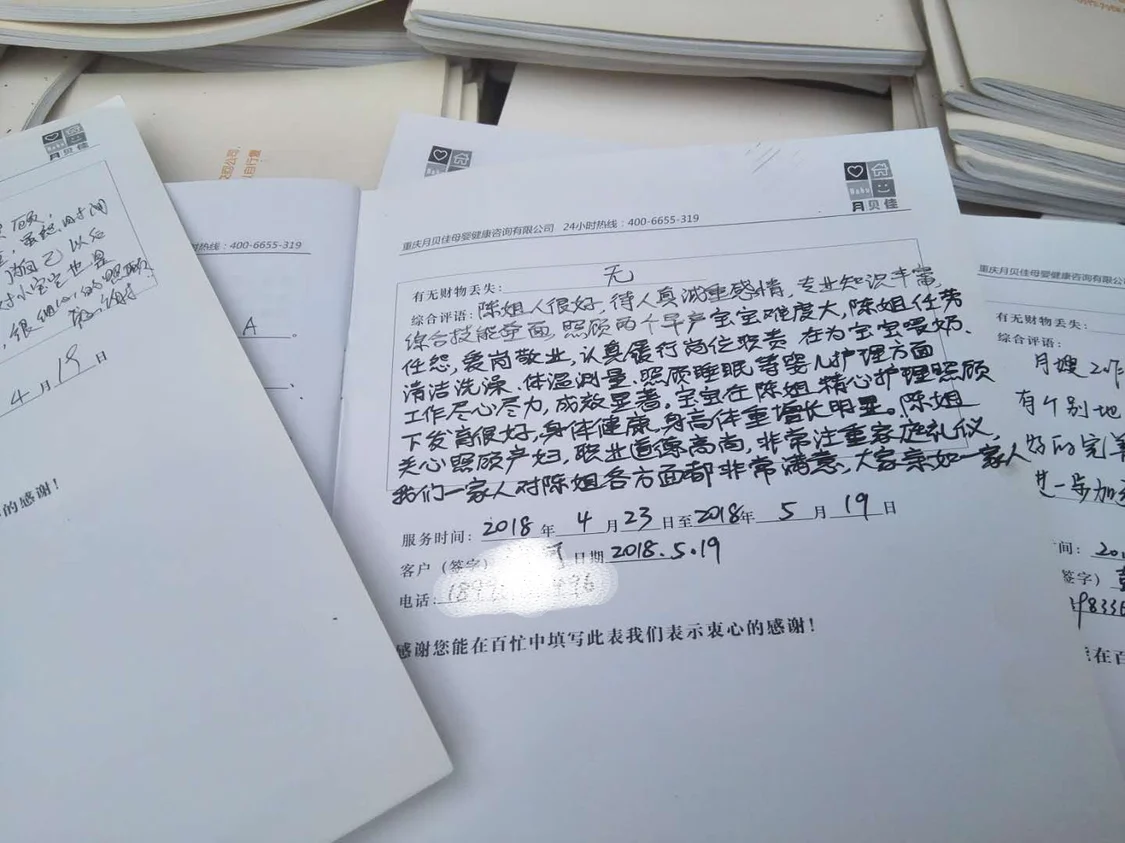 月贝佳
顾,
虽然时间
自己以后
对小宝宝也是
很细心的照顾
4月19日
的感谢!
热线:400-6655-319
A。
月贝佳
重庆月贝佳母婴健康咨询有限公司 24小时热线:400-6655-319
有无财物丢失: 无
综合评语:陈姐人很好,待人真诚重感情,专业知识丰富,
综合技能全面,照顾两个早产宝宝难度大,陈姐任劳
任怨,爱岗敬业,认真履行岗位职责,在为宝宝喂奶、
清洁洗澡、体温测量、照顾睡眠等婴儿护理方面
工作尽心尽力,成效显著。宝宝在陈姐精心护理照顾
下发育很好,身体健康,身高体重增长明显。陈姐
关心照顾产妇,职业道德高尚,非常注重家庭礼仪,
我们一家人对陈姐各方面都非常满意,大家亲如一家人
服务时间:2018年4月23日至2018年5月19日
客户(签字) 日期2018.5.19
电话:
感谢您能在百忙中填写此表我们表示衷心的感谢!
重庆月贝佳母婴健康咨询有限公
有无财物丢失:
综合评语:
月嫂工作
有个别地
好的完善
进一步加
间:20
签字)
在百